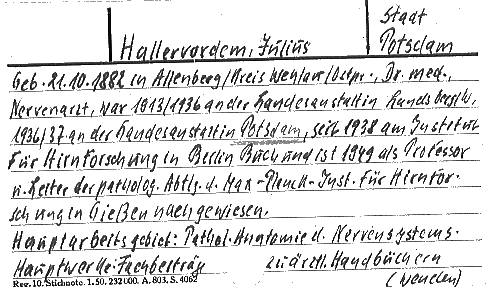 Stadt
Hallervordem, Julius Potsdam
Geb. 21.10.1882 in Allenberg/Kreis Wehlau/Ostpr., Dr. med.,
Nervenarzt, war 1913/1936 an der Landesanstalt in Landsberg/W,
1936/37 an der Landesanstalt in Potsdam, seit 1938 am Institut
für Hirnforschung in Berlin Buch und ist 1949 als Professor
u. Leiter der patholog. Abtlg. d. Max-Planck-Inst. für Hirnfor-
schung in Gießen nachgewiesen.
Hauptarbeitsgebiet: Pathol. Anatomie d. Nervensystems.
Hauptwerke: Fachbeiträge zu ärztl. Handbüchern
Reg. 10. Stichnote. 1. 50. 232000. A. 803. S. 4062